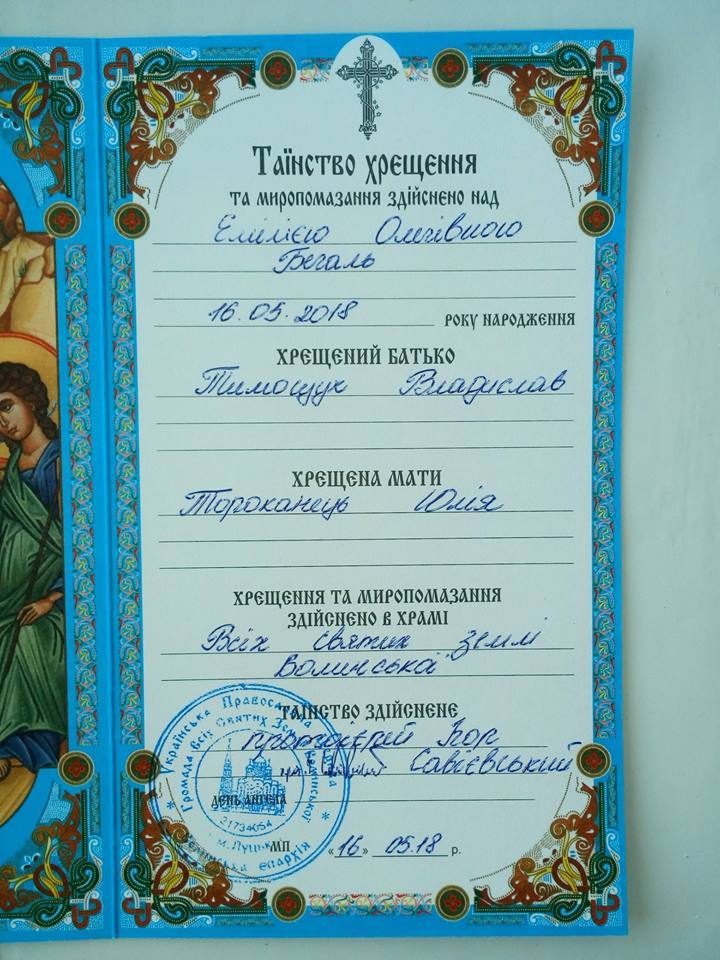 Таїнство хрещення
та миропомазання здійснено над
Емілією Олегівною
Бегаль
16.05.2018 року народження
хрещений батько
Тимощук Владислав
хрещена мати
Тороканець Юлія
хрещення та миропомазання
здійснено в храмі
Всіх святих землі
Волинської
таїнство здійснене
протоієрей Ігор
Савієвський
Українська Православна
Громада Всіх Святих Землі Волинської
день ангела
21734054
м. Луцьк
Волинська єпархія
мп «16» 05.18 р.